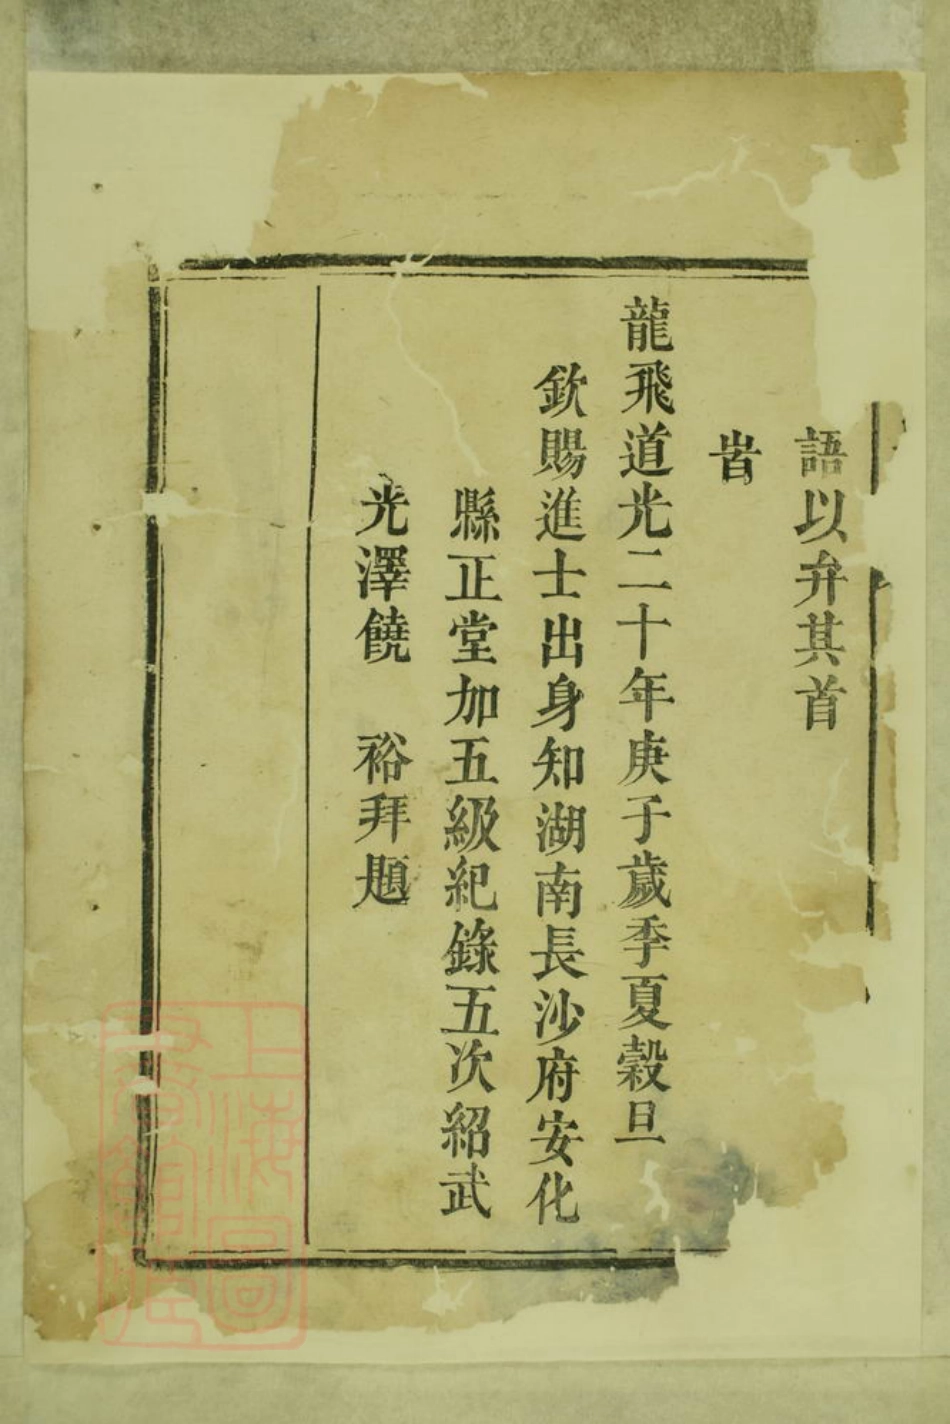 語以弁其首
旹
龍飛道光二十年庚子歲季夏穀旦
欽賜進士出身知湖南長沙府安化
縣正堂加五級紀錄五次紹武
光澤饒　裕拜題
上海圖
書館藏